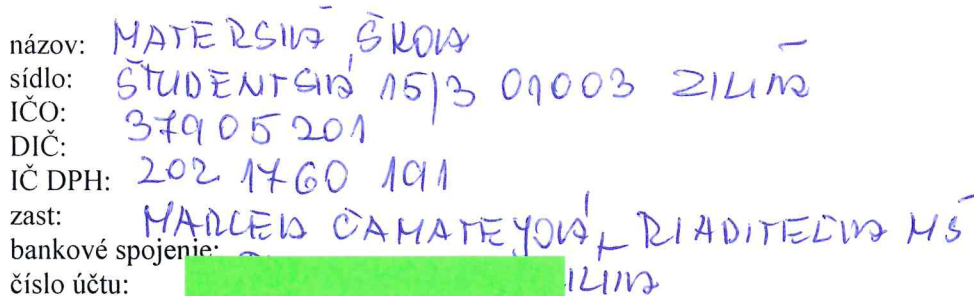 názov: MATERSKÁ ŠKOLA
sídlo: ŠTUDENTSKÁ 15/3 01003 ŽILINA
IČO: 37905201
DIČ:
IČ DPH: 202 1760 191
zast: MARCELA ČAMATEYOVÁ, RIADITEĽKA MŠ
bankové spojenie:
číslo účtu: ILINA